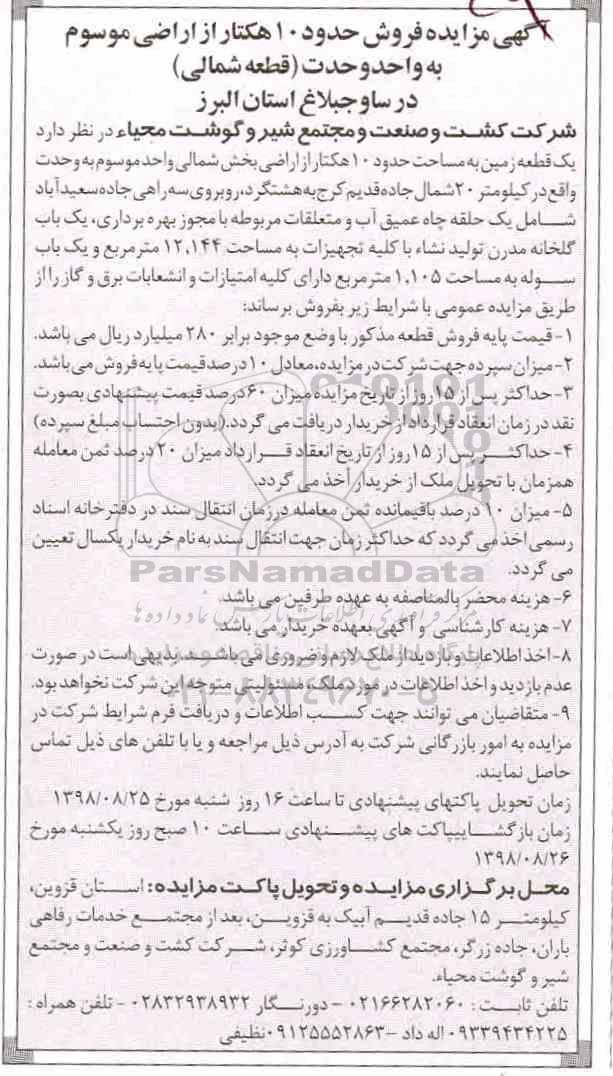 آگهی مزایده فروش حدود ۱۰ هکتار از اراضی موسوم
به واحد وحدت (قطعه شمالی)
در ساوجبلاغ استان البرز
شرکت کشت و صنعت و مجتمع شیر و گوشت محیاء در نظر دارد
یک قطعه زمین به مساحت حدود ۱۰ هکتار از اراضی بخش شمالی واحد موسوم به وحدت
واقع در کیلومتر ۲۰ شمال جاده قدیم کرج به هشتگرد، روبروی سه راهی جاده سعیدآباد
شامل یک حلقه چاه عمیق آب و متعلقات مربوطه با مجوز بهره برداری، یک باب
گلخانه مدرن تولید نشاء با کلیه تجهیزات به مساحت ۱۲,۱۴۴ مترمربع و یک باب
سوله به مساحت ۱,۱۰۵ مترمربع دارای کلیه امتیازات و انشعابات برق و گاز را از
طریق مزایده عمومی با شرایط زیر بفروش برساند:
۱- قیمت پایه فروش قطعه مذکور با وضع موجود برابر ۲۸۰ میلیارد ریال می باشد.
۲- میزان سپرده جهت شرکت در مزایده، معادل ۱۰ درصد قیمت پایه فروش می باشد.
۳- حداکثر پس از ۱۵ روز از تاریخ مزایده میزان ۶۰ درصد قیمت پیشنهادی بصورت
نقد در زمان انعقاد قرارداد از خریدار دریافت می گردد. (بدون احتساب مبلغ سپرده)
۴- حداکثر پس از ۱۵ روز از تاریخ انعقاد قرارداد میزان ۲۰ درصد ثمن معامله
همزمان با تحویل ملک از خریدار أخذ می گردد.
۵- میزان ۱۰ درصد باقیمانده ثمن معامله در زمان انتقال سند در دفترخانه اسناد
رسمی اخذ می گردد که حداکثر زمان جهت انتقال سند به نام خریدار یکسال تعیین
می گردد.
ParsNamadData
۶- هزینه محضر بالمناصفه به عهده طرفین می باشد.
۷- هزینه کارشناسی و آگهی بعهده خریدار می باشد.
۸- اخذ اطلاعات و بازدید از ملک لازم و ضروری می باشد. بدیهی است در صورت
عدم بازدید و اخذ اطلاعات در مورد ملک، مسئولیتی متوجه این شرکت نخواهد بود.
۹- متقاضیان می توانند جهت کسب اطلاعات و دریافت فرم شرایط شرکت در
مزایده به امور بازرگانی شرکت به آدرس ذیل مراجعه و یا با تلفن های ذیل تماس
حاصل نمایند.
زمان تحویل پاکتهای پیشنهادی تا ساعت ۱۶ روز شنبه مورخ ۱۳۹۸/۰۸/۲۵
زمان بازگشاییپاکت های پیشنهادی ساعت ۱۰ صبح روز یکشنبه مورخ
۱۳۹۸/۰۸/۲۶
محل برگزاری مزایده و تحویل پاکت مزایده: استان قزوین،
کیلومتر ۱۵ جاده قدیم آبیک به قزوین، بعد از مجتمع خدمات رفاهی
باران، جاده زرگر، مجتمع کشاورزی کوثر، شرکت کشت و صنعت و مجتمع
شیر و گوشت محیاء.
تلفن ثابت: ۰۲۱۶۶۲۸۲۰۶۰ - دورنگار ۰۲۸۳۲۹۳۸۹۳۲ - تلفن همراه:
۰۹۳۳۹۴۳۴۲۲۵ اله داد - ۰۹۱۲۵۵۵۲۸۶۳ نظیفی